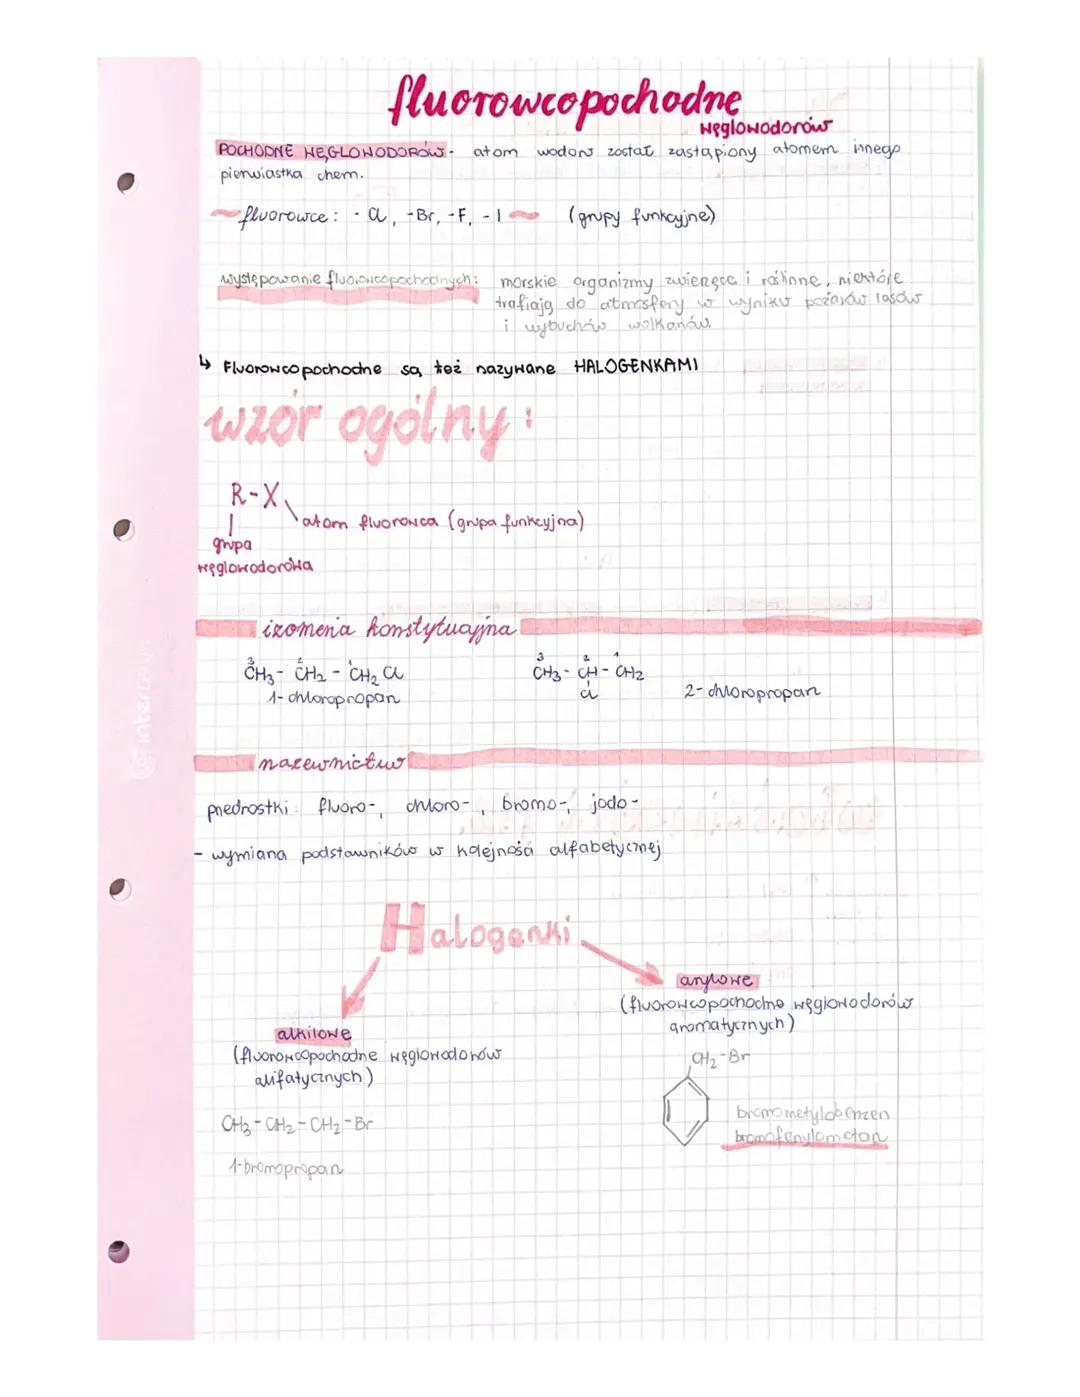 fluorowcopochodne
węglowodorów
POCHODNE WĘGLOWODORÓW - atom wodoru został zastąpiony atomem innego
pierwiastka chem.
fluorowce: -Cl, -Br, -F, -I (grupy funkcyjne)
występowanie fluorowcopochodnych: morskie organizmy zwierzęce i roślinne, niektóre
trafiają do atmosfery w wyniku pożarów lasów
i wybuchów wolkanów.
↳ Fluorowcopochodne są też nazywane HALOGENKAMI
wzór ogólny:
R-X
atom fluorowca (grupa funkcyjna)
grupa
węglowodorowa
izomeria konstytucyjna
3 2 1
CH3 - CH2 - CH2 Cl
1-chloropropan
3 2 1
CH3 - CH - CH2
Cl
2-chloropropan
nazewnictwo
przedrostki: fluoro-, chloro-, bromo-, jodo-
- wymiana podstawników w kolejności alfabetycznej
Halogenki
alkilowe
(fluorowcopochodne węglowodorów
alifatycznych)
CH3 - CH2 - CH2 - Br
1-bromopropan
arylowe
(fluorowcopochodne węglowodorów
aromatycznych)
CH2 - Br
bromometylobenzen
bromofenylometan